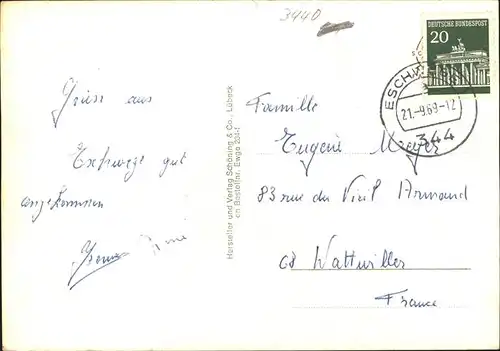 3440
DEUTSCHE BUNDESPOST
20
ESCHWEGE
21.-9.69-12
344
Gruss aus
Eschwege gut
angekommen
Hersteller und Verlag Schöning & Co., Lübeck
Bestellnr. Ewge
Famille
Eugene Meyer
83 rue du Vieil Armand
68 Wattwiller
France